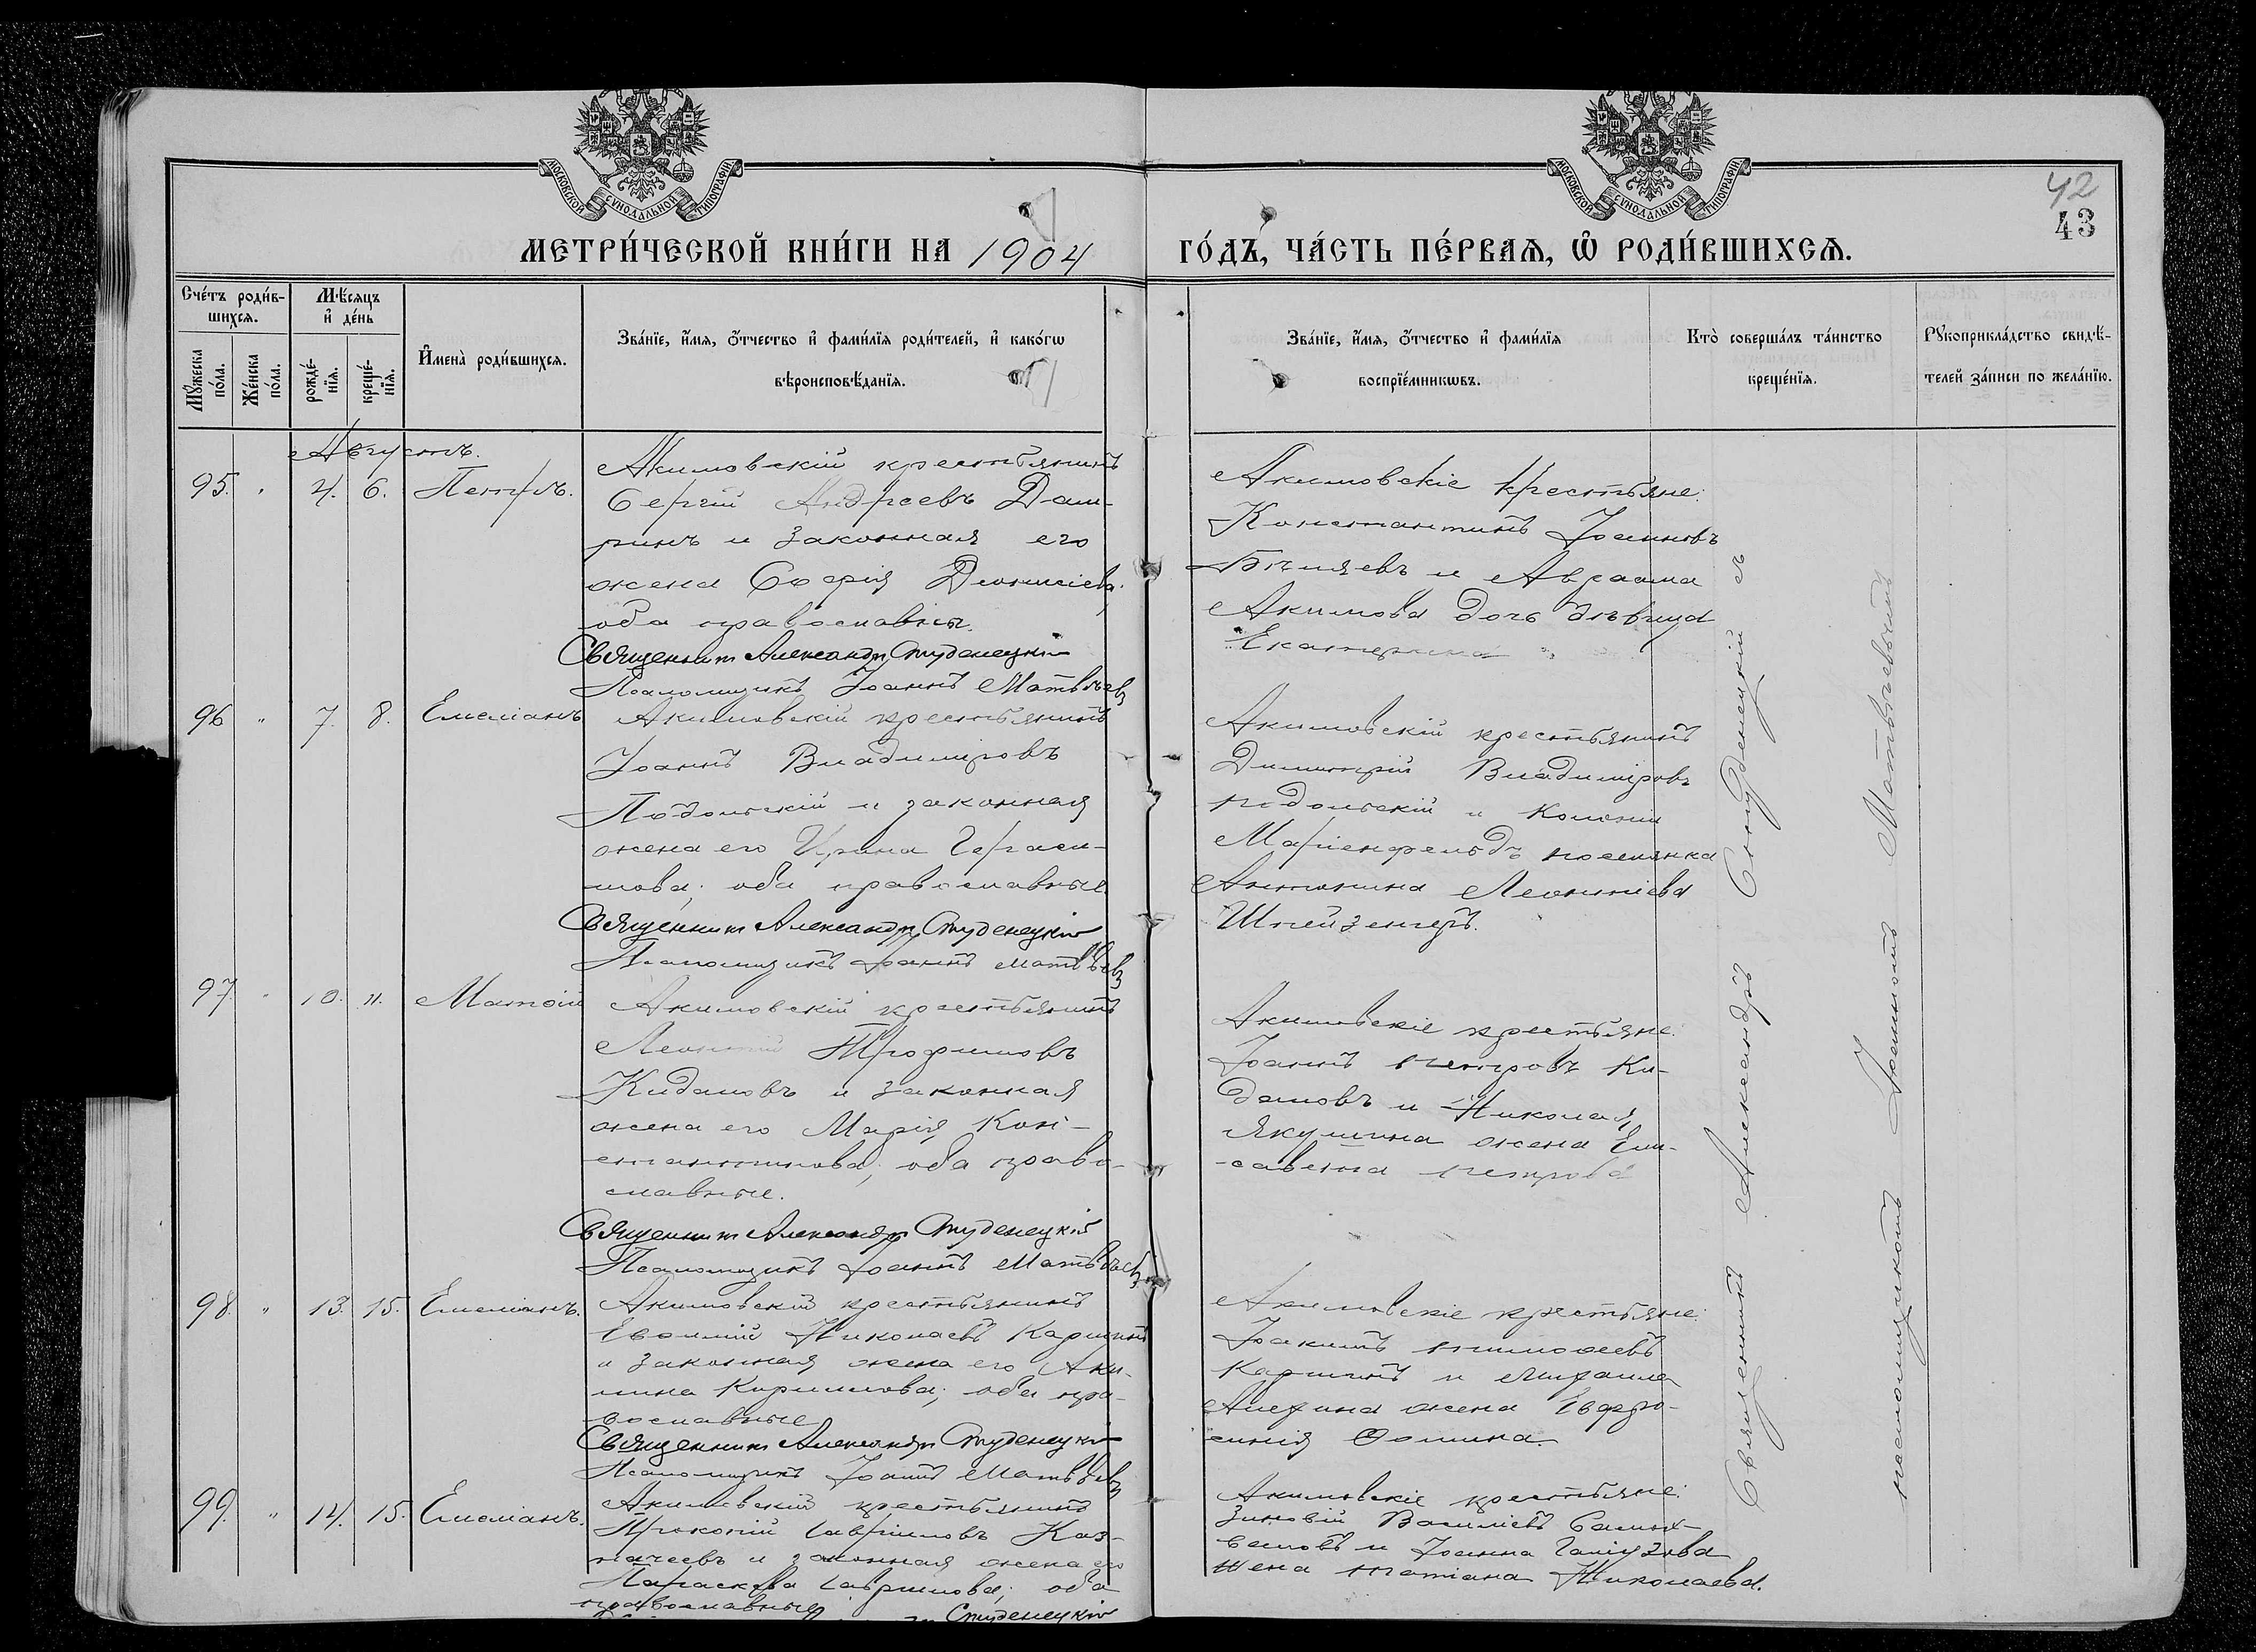 МОСКОВСКОЙ СѴНОДАЛЬНОЙ ТИПОГРАФІИ
МОСКОВСКОЙ СѴНОДАЛЬНОЙ ТИПОГРАФІИ
42
43
МЕТРИ́ЧЕСКОЙ КНИ́ГИ НА 1904 ГО́ДЪ, ЧА́СТЬ ПЕ́РВАѦ, Ѡ҆ РОДИ́ВШИХСѦ.
Счéтъ роди́в-
шихсѧ.
Мѣ́сяцъ
и҆ дéнь
Мꙋ́жеска
по́ла.
Жéнска
по́ла.
рождé-
нїѧ.
крещé-
нїѧ.
И҆мена̀ роди́вшихсѧ.
Зва́нїе, и҆́мѧ, ѻ҆́тчество и҆ фами́лїѧ роди́телей, и҆ како́гѡ
вѣроисповѣ́данїѧ.
Зва́нїе, и҆́мѧ, ѻ҆́тчество и҆ фами́лїѧ
воспрїéмникѡвъ.
Кто̀ соверша́лъ та́инство
крещéнїѧ.
Рꙋкоприкла́дство свидѣ́-
телей за́писи по жела́нїю.
Августъ.
95. " 4. 6. Петръ.
Акимовскій крестьянинъ
Сергій Андреевъ Даш-
ринъ и законная его
жена Софія Діонисіева;
оба православны.
Священникъ Александръ Студенецкій
Псаломщикъ Іоаннъ Матвѣевъ
Акимовскіе крестьяне:
Константинъ Іоанновъ
Бѣляевъ и Авраама
Акимова дочь дѣвица
Екатерина
96 " 7. 8. Емеліанъ
Акимовскій крестьянинъ
Іоаннъ Владиміровъ
Подольскій и законная
жена его Ирина Гераси-
мова; оба православные
Священникъ Александръ Студенецкій
Псаломщикъ Іоаннъ Матвѣевъ
Акимовскій крестьянинъ
Димитрій Владиміровъ
Подольскій и колоніи
Маріенфельдъ поселянка
Антонина Леонтіева
97. " 10. 11. Матѳій
Акимовскій крестьянинъ
Леонтій Трофимовъ
Кидаловъ и законная
жена его Марія Кон-
стантинова; оба право-
славные.
Священникъ Александръ Студенецкій
Псаломщикъ Іоаннъ Матвѣевъ
Акимовскіе крестьяне:
Іоаннъ Петровъ Ки-
даловъ и Николая
Якушина жена Ели-
савета Петрова
98. " 13. 15. Емеліанъ.
Акимовскій крестьянинъ
Евѳимій Николаевъ Каршинъ
и законная жена его Аки-
лина Кириллова; оба пра-
вославные
Священникъ Александръ Студенецкій
Псаломщикъ Іоаннъ Матвѣевъ
Акимовскіе крестьяне:
Іоакимъ Тимоѳеевъ
Каршинъ и Михаила
Алехина жена Евфро-
синія Ѳомина.
99. " 14. 15. Емеліанъ.
Акимовскій крестьянинъ
Прокопій Гавріиловъ Каз-
начеевъ и законная жена его
Параскева Гавриилова; оба
православные
Студенецкій
Акимовскіе крестьяне:
Зиновій Василіевъ
и Іоанна
жена Татіана Николаева.
Священникъ Александръ Студенецкій съ
псаломщикомъ Іоанномъ Матвѣевымъ